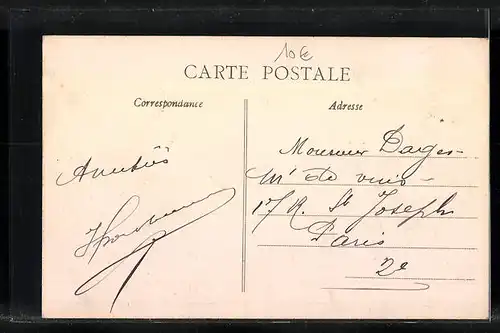 10€
CARTE POSTALE
Correspondance
Adresse
Amitiés
Monsieur Darges
Md de vins
17 R. St Joseph
Paris
2e